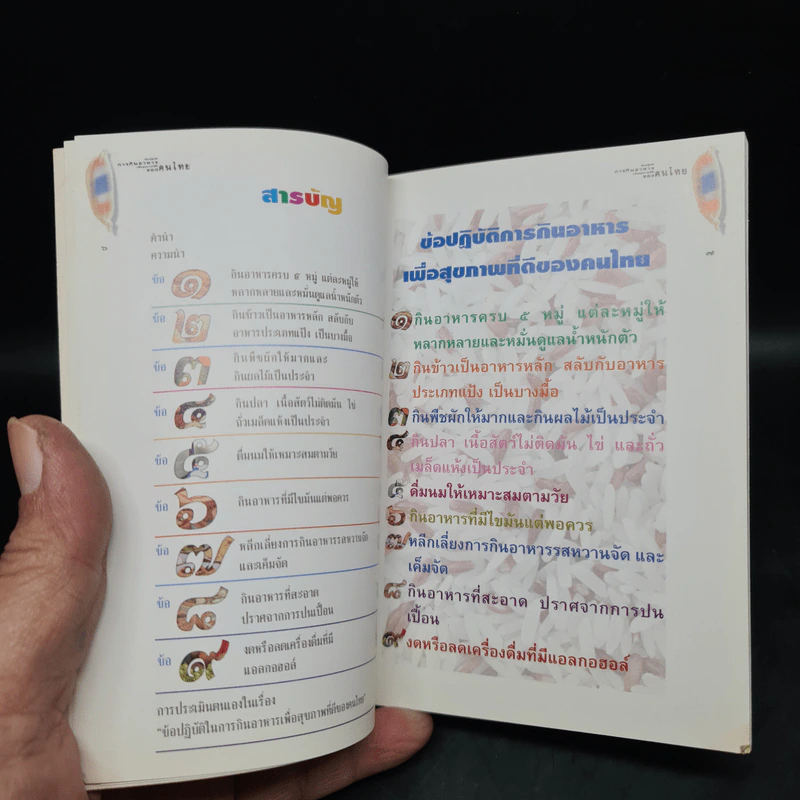 การกินอาหาร
ของคนไทย
สารบัญ
คำนำ
ความนำ
๖
ข้อ ๑ กินอาหารครบ ๕ หมู่ แต่ละหมู่ให้
หลากหลายและหมั่นดูแลน้ำหนักตัว
ข้อ ๒ กินข้าวเป็นอาหารหลัก สลับกับ
อาหารประเภทแป้ง เป็นบางมื้อ
ข้อ ๓ กินพืชผักให้มากและ
กินผลไม้เป็นประจำ
ข้อ ๔ กินปลา เนื้อสัตว์ไม่ติดมัน ไข่
ถั่วเมล็ดแห้งเป็นประจำ
ข้อ ๕ ดื่มนมให้เหมาะสมตามวัย
ข้อ ๖ กินอาหารที่มีไขมันแต่พอควร
ข้อ ๗ หลีกเลี่ยงการกินอาหารรสหวานจัด
และเค็มจัด
ข้อ ๘ กินอาหารที่สะอาด
ปราศจากการปนเปื้อน
ข้อ ๙ งดหรือลดเครื่องดื่มที่มี
แอลกอฮอล์
การประเมินตนเองในเรื่อง
"ข้อปฏิบัติในการกินอาหารเพื่อสุขภาพที่ดีของคนไทย"
การกินอาหาร
ของคนไทย
๗
ข้อปฏิบัติการกินอาหาร
เพื่อสุขภาพที่ดีของคนไทย
๑ กินอาหารครบ ๕ หมู่ แต่ละหมู่ให้
หลากหลายและหมั่นดูแลน้ำหนักตัว
๒ กินข้าวเป็นอาหารหลัก สลับกับอาหาร
ประเภทแป้ง เป็นบางมื้อ
๓ กินพืชผักให้มากและกินผลไม้เป็นประจำ
๔ กินปลา เนื้อสัตว์ไม่ติดมัน ไข่ และถั่ว
เมล็ดแห้งเป็นประจำ
๕ ดื่มนมให้เหมาะสมตามวัย
๖ กินอาหารที่มีไขมันแต่พอควร
๗ หลีกเลี่ยงการกินอาหารรสหวานจัด และ
เค็มจัด
๘ กินอาหารที่สะอาด ปราศจากการปน
เปื้อน
๙ งดหรือลดเครื่องดื่มที่มีแอลกอฮอล์